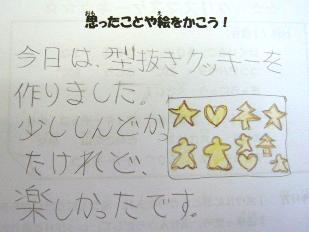 思ったことや絵をかこう！
今日は、型抜きクッキーを
作りました。
少ししんどかっ
たけれど、
楽しかったです。